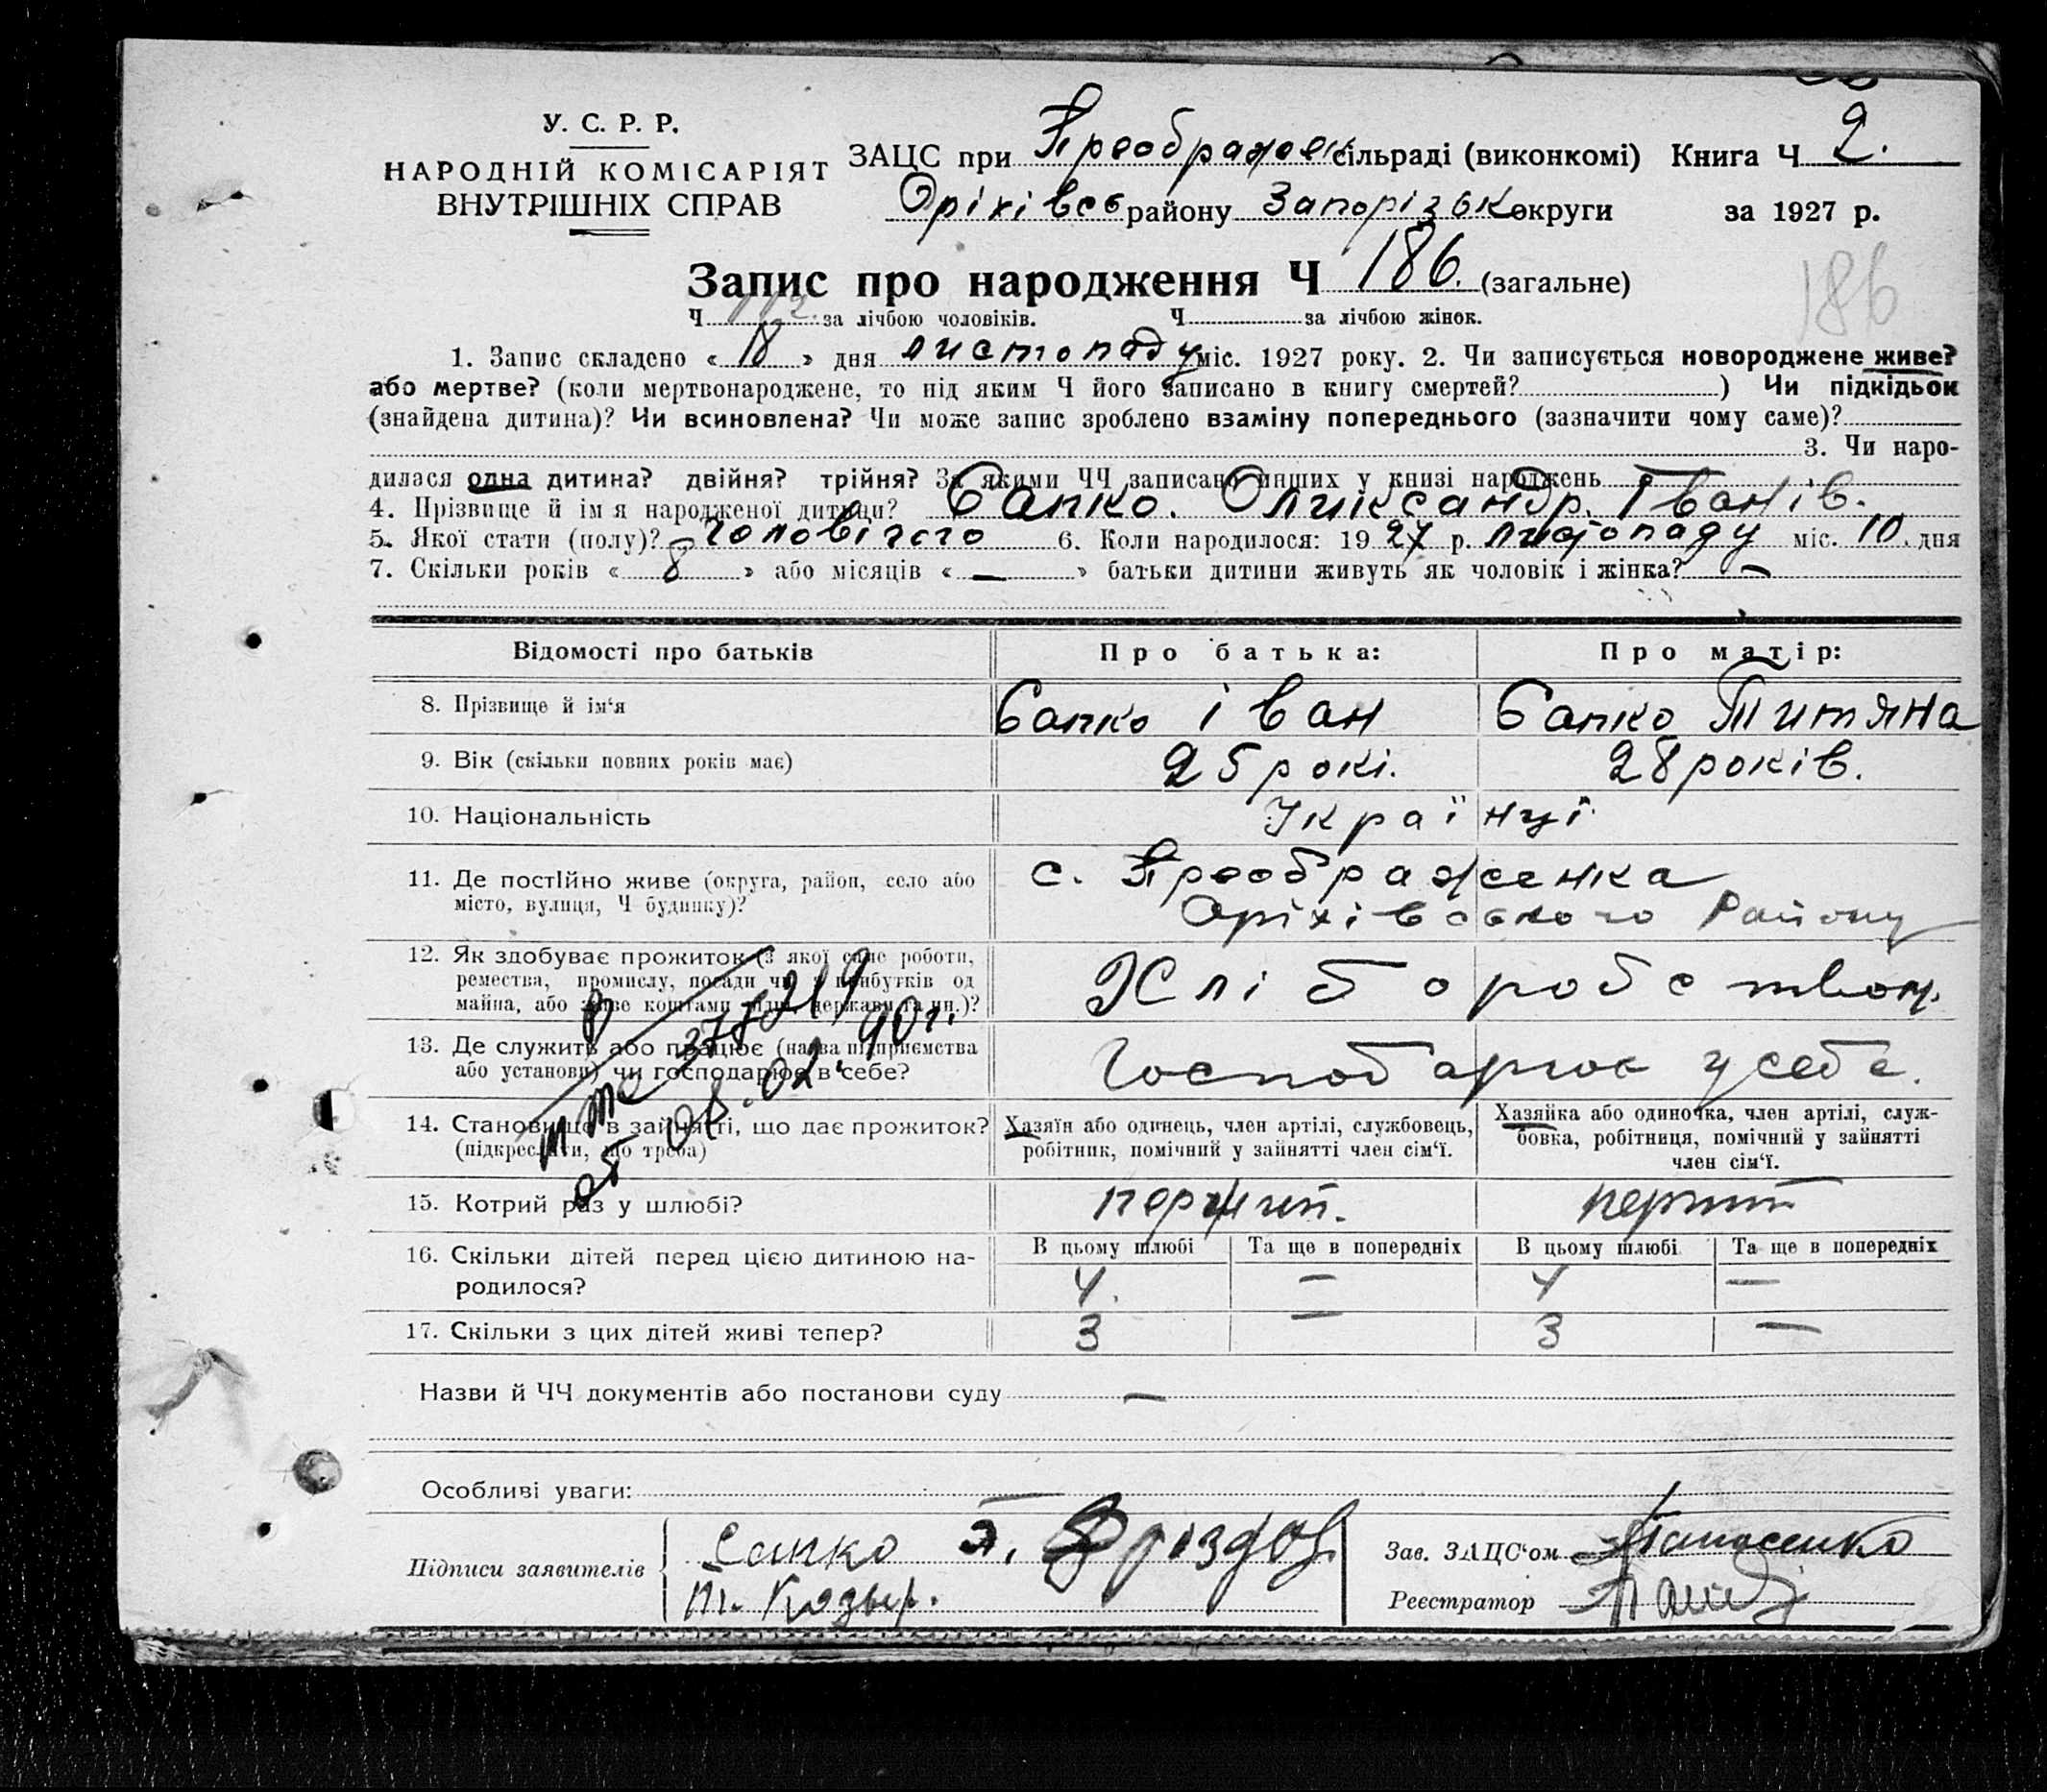 У. С. Р. Р.
НАРОДНІЙ КОМІСАРІЯТ
ВНУТРІШНІХ СПРАВ
ЗАЦС при Преображенск сільраді (виконкомі) Книга Ч 2.
Оріхівсь району Запорізьк округи за 1927 р.
Запис про народження Ч 186. (загальне)
186
Ч 112. за лічбою чоловіків. Ч за лічбою жінок.
1. Запис складено « 18 » дня листопаду міс. 1927 року. 2. Чи записується новороджене живе?
або мертве? (коли мертвонароджене, то під яким Ч його записано в книгу смертей? ) Чи підкідьок
(знайдена дитина)? Чи всиновлена? Чи може запис зроблено взаміну попереднього (зазначити чому саме)?
3. Чи наро-
дилася одна дитина? двійня? трійня? За якими ЧЧ записано инших у книзі народжень
4. Прізвище й ім я народженої дитини? Сапко. Оликсандр. Іванів.
5. Якої стати (полу)? чоловічого 6. Коли народилося: 1927 р. листопаду міс. 10. дня
7. Скільки років « 8 » або місяців « — » батьки дитини живуть як чоловік і жінка? —
Відомості про батьків Про батька: Про матір:
8. Прізвище й ім'я Сапко Іван Сапко Титяна
9. Вік (скільки повних років має) 25 рокі. 28 років.
10. Національність Українці
11. Де постійно живе (округа, район, село або с. Преображенка
місто, вулиця, Ч будинку)? Оріхівського Району
12. Як здобуває прожиток (з якої саме роботи,
ремества, промислу, посади чи з прибутків од
майна, або живе коштами рідні, держави та ин.)? Хліборобством.
13. Де служить або працює (назва підприємства
або установи) чи господарює в себе? Господарює у себе.
378219
от 08.02.90 г.
14. Становище в занятті, що дає прожиток? Хазяїн або одинець, член артілі, службовець, Хазяйка або одиночка, член артілі, служ-
(підкреслити, що треба) робітник, помічний у зайнятті член сім'ї. бовка, робітниця, помічний у зайнятті
член сім'ї.
15. Котрий раз у шлюбі?
16. Скільки дітей перед цією дитиною на- В цьому шлюбі Та ще в попередніх В цьому шлюбі Та ще в попередніх
родилося? 4. — 4 —
17. Скільки з цих дітей живі тепер? 3 — 3 —
Назви й ЧЧ документів або постанови суду —
Особливі уваги:
Підписи заявителів Сапко
Зав. ЗАЦС'ом Панасенко
Реєстратор